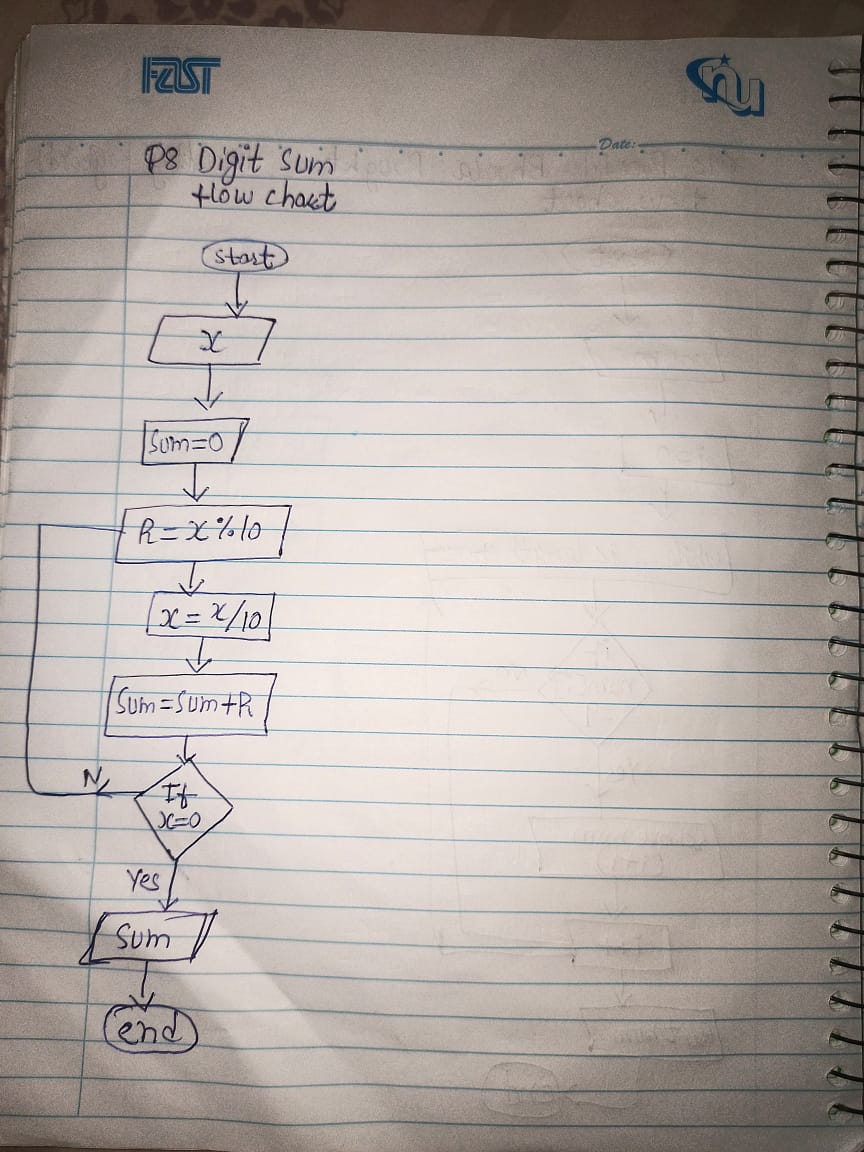 FAST
nu
Date:
P8 Digit Sum
flow chart
start
x
Sum=0
R=x%10
x=x/10
Sum=Sum+R
N
If
x=0
Yes
Sum
end